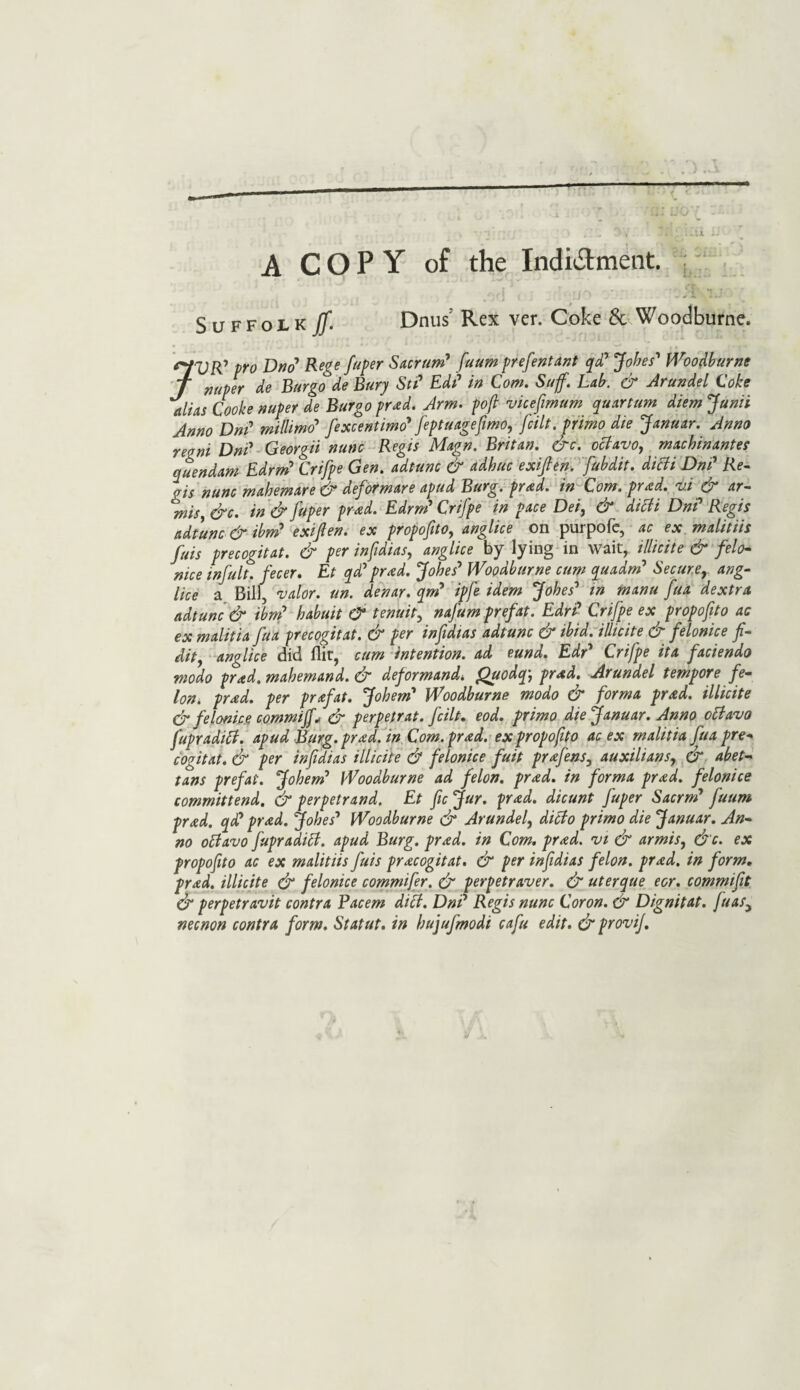 A COPY of the Indictment.
SUFFOLK ſſ. Dnus' Rex ver. Coke & Woodburne.
JUR' pro Dno' Rege ſuper Sacrum' ſuum preſentant qd' Johes' Woodburne
nuper de Burgo de Bury Sti' Edi' in Com. Suff. Lab. & Arundel Coke
alias Cooke nuper de Burgo præd. Arm. poſt viceſimum quartum diem Junii
Anno Dni' millimo' ſexcentimo' ſeptuageſimo, ſcilt. primo die Januar. Anno
regni Dni' Georgii nunc Regis Magn. Britan. &c. octavo, machinantes
quendam Edrm' Criſpe Gen. adtunc & adhuc exiſten. ſubdit. dicti Dni' Re-
gis nunc mahemare & deformare apud Burg. præd. in Com. præd. vi & ar-
mis, &c. in & ſuper præd. Edrm' Criſpe in pace Dei, & dicti Dni' Regis
adtunc & ibm' exiſten. ex propoſito, anglice on purpoſe, ac ex malitiis
ſuis precogitat. & per inſidias, anglice by lying in wait, illicite & felo-
nice inſult. fecer. Et qd' præd. Johes' Woodburne cum quadm' Secure, ang-
lice a Bill, valor. un. denar. qm' ipſe idem Johes' in manu ſua dextra
adtunc & ibm' habuit & tenuit, naſum prefat. Edri' Criſpe ex propoſito ac
ex malitia ſua precogitat. & per inſidias adtunc & ibid. illicite & felonice fi-
dit, anglice did ſlit, cum intention. ad eund. Edr' Criſpe ita faciendo
modo præd. mahemand. & deformand. Quodq; præd. Arundel tempore fe-
lon. præd. per præfat. Johem' Woodburne modo & forma præd. illicite
& felonice commiſſ. & perpetrat. ſcilt. eod. primo die Januar. Anno octavo
ſupradict. apud Burg. præd. in Com. præd. ex propoſito ac ex malitia ſua pre-
cogitat. & per inſidias illicite & felonice fuit præſens, auxilians, & abet-
tans prefat. Johem' Woodburne ad felon. præd. in forma præd. felonice
committend. & perpetrand. Et ſic Jur. præd. dicunt ſuper Sacrm' ſuum
præd. qd' præd. Johes' Woodburne & Arundel, dicto primo die Januar. An-
no octavo ſupradict. apud Burg. præd. in Com. præd. vi & armis, &c. ex
propoſito ac ex malitiis ſuis præcogitat. & per inſidias felon. præd. in form.
præd. illicite & felonice commiſer. & perpetraver. & uterque eor. commiſit
& perpetravit contra Pacem dict. Dni' Regis nunc Coron. & Dignitat. ſuas,
necnon contra form. Statut. in hujuſmodi caſu edit. & proviſ.